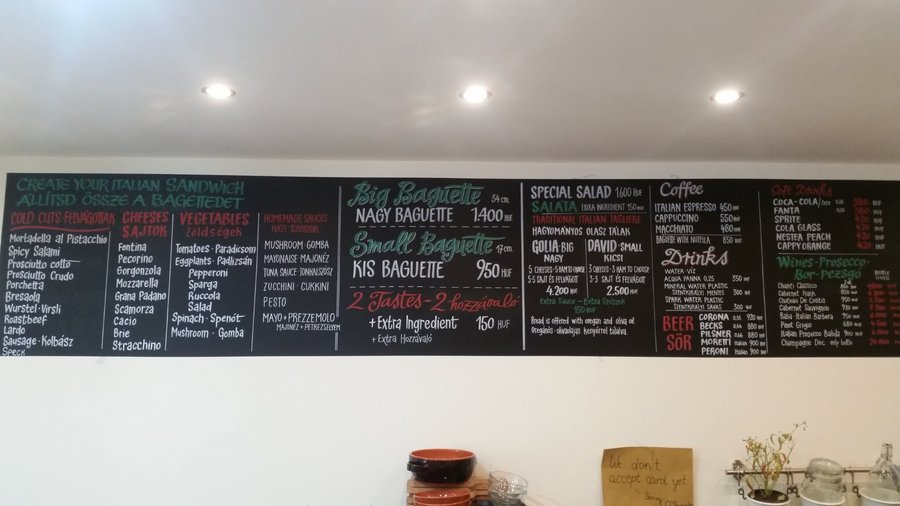 CREATE YOUR ITALIAN SANDWICH
ÁLLÍTSD ÖSSZE A BAGETTEDET
COLD CUTS·FELVÁGOTTAK
Mortadella al Pistacchio
Spicy Salami
Prosciutto cotto
Prosciutto Crudo
Porchetta
Bresaola
Wurstel·Virsli
Roastbeef
Lardo
Sausage·Kolbász
Speck
CHEESES
SAJTOK
Fontina
Pecorino
Gorgonzola
Mozzarella
Grana Padano
Scamorza
Cacio
Brie
Stracchino
VEGETABLES
Zöldségek
Tomatoes·Paradicsom
Eggplants·Padlizsán
Pepperoni
Sparga
Ruccola
Salad
Spinach·Spenót
Mushroom·Gomba
HOMEMADE SAUCES
HÁZI SZÓSZOK
MUSHROOM·GOMBA
MAYONAISE MAJONÉZ
TUNA SAUCE TONHALSZÓSZ
ZUCCHINI·CUKKINI
PESTO
MAYO+PREZZEMOLO
MAJONÉZ+PETREZSELYEM
Big Baguette 34 cm.
NAGY BAGUETTE 1.400 HUF
Small Baguette 17 cm.
KIS BAGUETTE 950 HUF
2 Tastes-2 hozzávaló
+Extra Ingredient 150 HUF
+Extra Hozzávaló
SPECIAL SALAD 1.600 HUF
SALATA EXTRA INGREDIENT 150 HUF
TRADITIONAL ITALIAN TAGLIERE
HAGYOMÁNYOS OLASZ TÁLAK
GOLIA·BIG
NAGY
5 CHEESES-5 HAM TO CHOOSE
5-5 SAJT ÉS FELVÁGOTT
4.200 HUF
DAVID·SMALL
KICSI
3 CHEESES-3 HAM TO CHOOSE
3-3 SAJT ÉS FELVÁGOTT
2.500 HUF
Extra Sauce-Extra Szószok
150 HUF
Bread is offered with oregan and oliva oil.
Oregánós-olivaolajos kenyérrel tálalva.
Coffee
ITALIAN ESPRESSO 450 HUF
CAPPUCCINO 550 HUF
MACCHIATO 480 HUF
BAGUETTE WITH NUTELLA 850 HUF
Drinks
WATER VÍZ
ACQUA PANNA 0.25 350 HUF
MINERAL WATER PLASTIC
SZÉNSAVMENTES 300 HUF
SPARK WATER PLASTIC
SZÉNSAVAS 300 HUF
BEER
SÖR
CORONA 920 HUF
BECKS 880 HUF
PILSNER 880 HUF
MORETTI Italian 900 HUF
PERONI Italian 900 HUF
Soft Drinks
COCA-COLA/zero 380 HUF
FANTA 380 HUF
SPRITE 420 HUF
COLA GLASS 420 HUF
NESTEA PEACH 420 HUF
CAPPY ORANGE 420 HUF
Wines·Prosecco
Bor·Pezsgő
BOTTLE
Chianti Classico
Cabernet Frank
Chateau De Crotta
Cabernet Sauvignon
Baba Italian Barbera
Pinot Grigio
Italian Prosecco Babila
Champagne Doc only bottle
We don't
accept card yet
Sorry